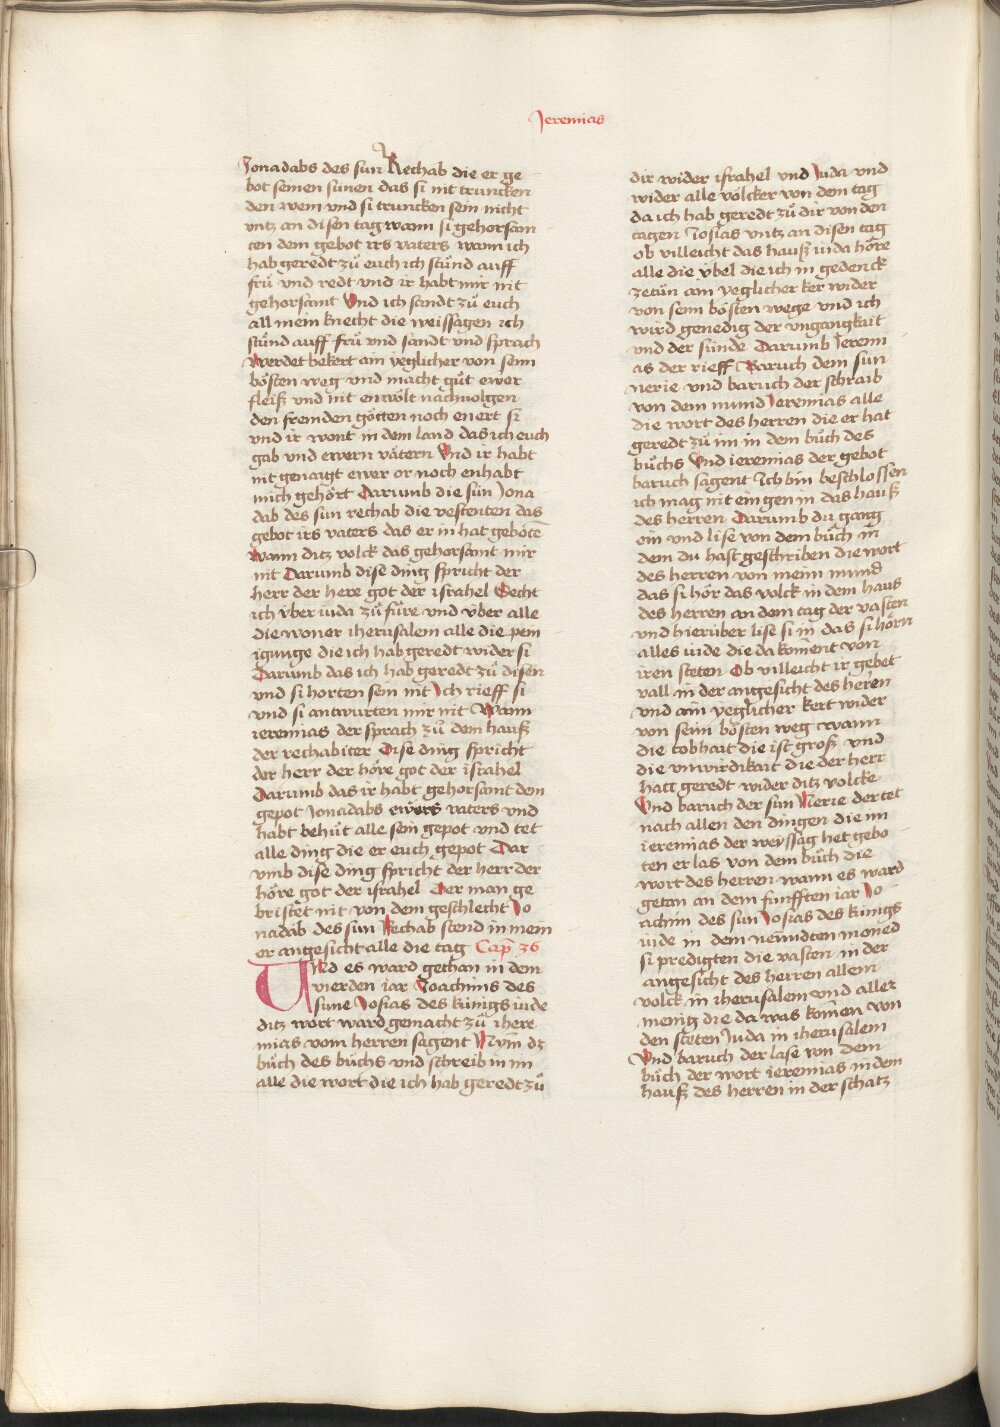 Jeremias
Jonadabs des sun Rechab die er ge
bot seinen sunen das si nit truncken
den wein vnd si truncken sein nicht
vntz an disen tag wann si gehorsam
ten dem gebot irs vaters wann ich
hab geredt zů euch ich stůnd auff
frů vnd redt vnd ir habt mir nit
gehorsamt Vnd ich sandt zů euch
all mein knecht die weissagen ich
stůnd auff frů vnd sandt vnd sprach
Werdet bekert ain yeglicher von seim
bösten weg vnd macht gůt ewer
fleiß vnd nit enwölt nachuolgen
den fremden götten noch enert si
vnd ir wont in dem land das ich euch
gab vnd ewern vätern Vnd ir habt
nit genaigt ewer or noch enhabt
mich gehört Darumb die sün Jona
dab des sun rechab die vestenten das
gebot irs vaters das er in hat gebotē
Wann ditz volck das gehorsamt mir
nit Darumb dise ding spricht der
herr der here got der israhel Secht
ich über iuda zů fůre vnd über alle
die woner iherusalem alle die pein
igunge die ich hab geredt wider si
Darumb das ich hab geredt zů disen
vnd si horten sein nit Ich rieff si
vnd si antwurten mir nit Wann
ieremias der sprach zů dem hauß
der rechabiter Dise ding spricht
der herr der höre got der israhel
Darumb das ir habt gehorsamt dem
gepot Jonadabs ewers vaters vnd
habt behüt alle sein gepot vnd tet
alle ding die er euch gepot Dar
vmb dise ding spricht der herr der
höre got der israhel Der man ge
bristet nit von dem geschlecht Jo
nadab des sun Rechab stend in mein
er angesicht alle die tag Cap̄ 36
Vnd es ward gethan in dem
vierden iar Joachims des
sune Josias des künigs iude
ditz wort ward gemacht zů ihere
mias vom herren sagent Nym dz
bůch des bůchs vnd schreib in im
alle die wort die ich hab geredt zů
dir wider israhel vnd Juda vnd
wider alle völcker von dem tag
da ich hab geredt zů dir von den
tagen Josias vntz an disen tag
ob villeicht das hauß iuda höre
alle die übel die ich in gedenck
zetůn ain yeglicher ker wider
von seim bösten wege vnd ich
wird genedig der vngangkait
vnd der sünde Darumb Jeremi
as der rieff Baruch dem sun
nerie vnd baruch der schraib
von dem mund Jeremias alle
die wort des herren die er hat
geredt zů im in dem bůch des
bůchs Vnd ieremias der gebot
baruch sagent Ich bin beschlossen
ich mag nit ein gen in das hauß
des herren Darumb du gang
ein vnd lise von dem bůch in
dem du hast geschriben die wort
des herren von meim mund
das si hör das volck in dem haus
des herren an dem tag der vasten
vnd hierüber lise si in das si hörn
alles iude die da koment von
iren steten Ob villeicht ir gebet
vall in der angesicht des herēn
vnd ain yeglicher kert wider
von seim bösten weg wann
die tobhait die ist groß vnd
die vnwirdikait die der herr
hatt geredt wider ditz volcke
Vnd baruch der sun Nerie der tet
nach allen den dingen die im
ieremias der weyssag het gebo
ten er las von dem bůch die
wort des herren wann es ward
getan an dem funfften iar Jo
achim des sun Josias des künigs
iude in dem neundten moned
si predigten die vasten in der
angesicht des herren allem
volck in iherusalem vnd aller
menig die da was komen von
den steten Juda in iherusalem
Vnd baruch der lase von dem
bůch der wort ieremias in dem
hauß des herren in der schatz